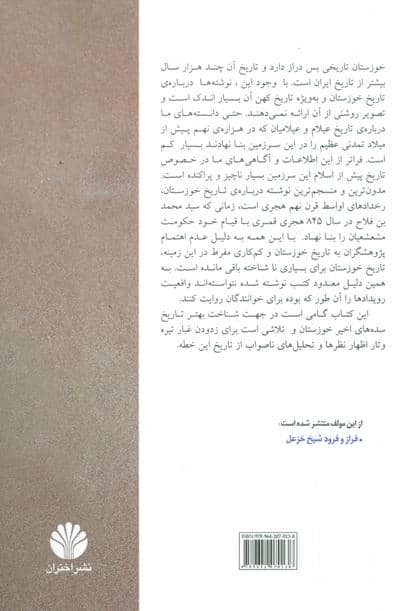 خوزستان تاریخی بس دراز دارد و تاریخ آن چند هزار سال
بیشتر از تاریخ ایران است. با وجود این ، نوشته‌ها درباره‌ی
تاریخ خوزستان و به‌ویژه تاریخ کهن آن بسیار اندک است و
تصویر روشنی از آن ارائه نمی‌دهند. حتی دانسته‌های ما
درباره‌ی تاریخ عیلام و عیلامیان که در هزاره‌ی نهم پیش از
میلاد تمدنی عظیم را در این سرزمین بنا نهادند بسیار کم
است. فراتر از این اطلاعات و آگاهی‌های ما در خصوص
تاریخ پیش از اسلام این سرزمین بسیار ناچیز و پراکنده است.
مدون‌ترین و منسجم‌ترین نوشته درباره‌ی تاریخ خوزستان،
رخدادهای اواسط قرن نهم هجری است، زمانی که سید محمد
بن فلاح در سال ۸۴۵ هجری قمری با قیام خود حکومت
مشعشعیان را بنا نهاد. با این همه به دلیل عدم اهتمام
پژوهشگران به تاریخ خوزستان و کم‌کاری مفرط در این زمینه،
تاریخ خوزستان برای بسیاری نا شناخته باقی مانده است. به
همین دلیل معدود کتب نوشته شده نتواسته‌اند واقعیت
رویدادها را آن طور که بوده برای خوانندگان روایت کنند.
این کتاب گامی است در جهت شناخت بهتر تاریخ
سده‌های اخیر خوزستان و تلاشی است برای زدودن غبار تیره
وتار اظهار نظرها و تحلیل‌های ناصواب از تاریخ این خطه.
از این مولف منتشر شده است:
• فراز و فرود شیخ خزعل
نشر اختران